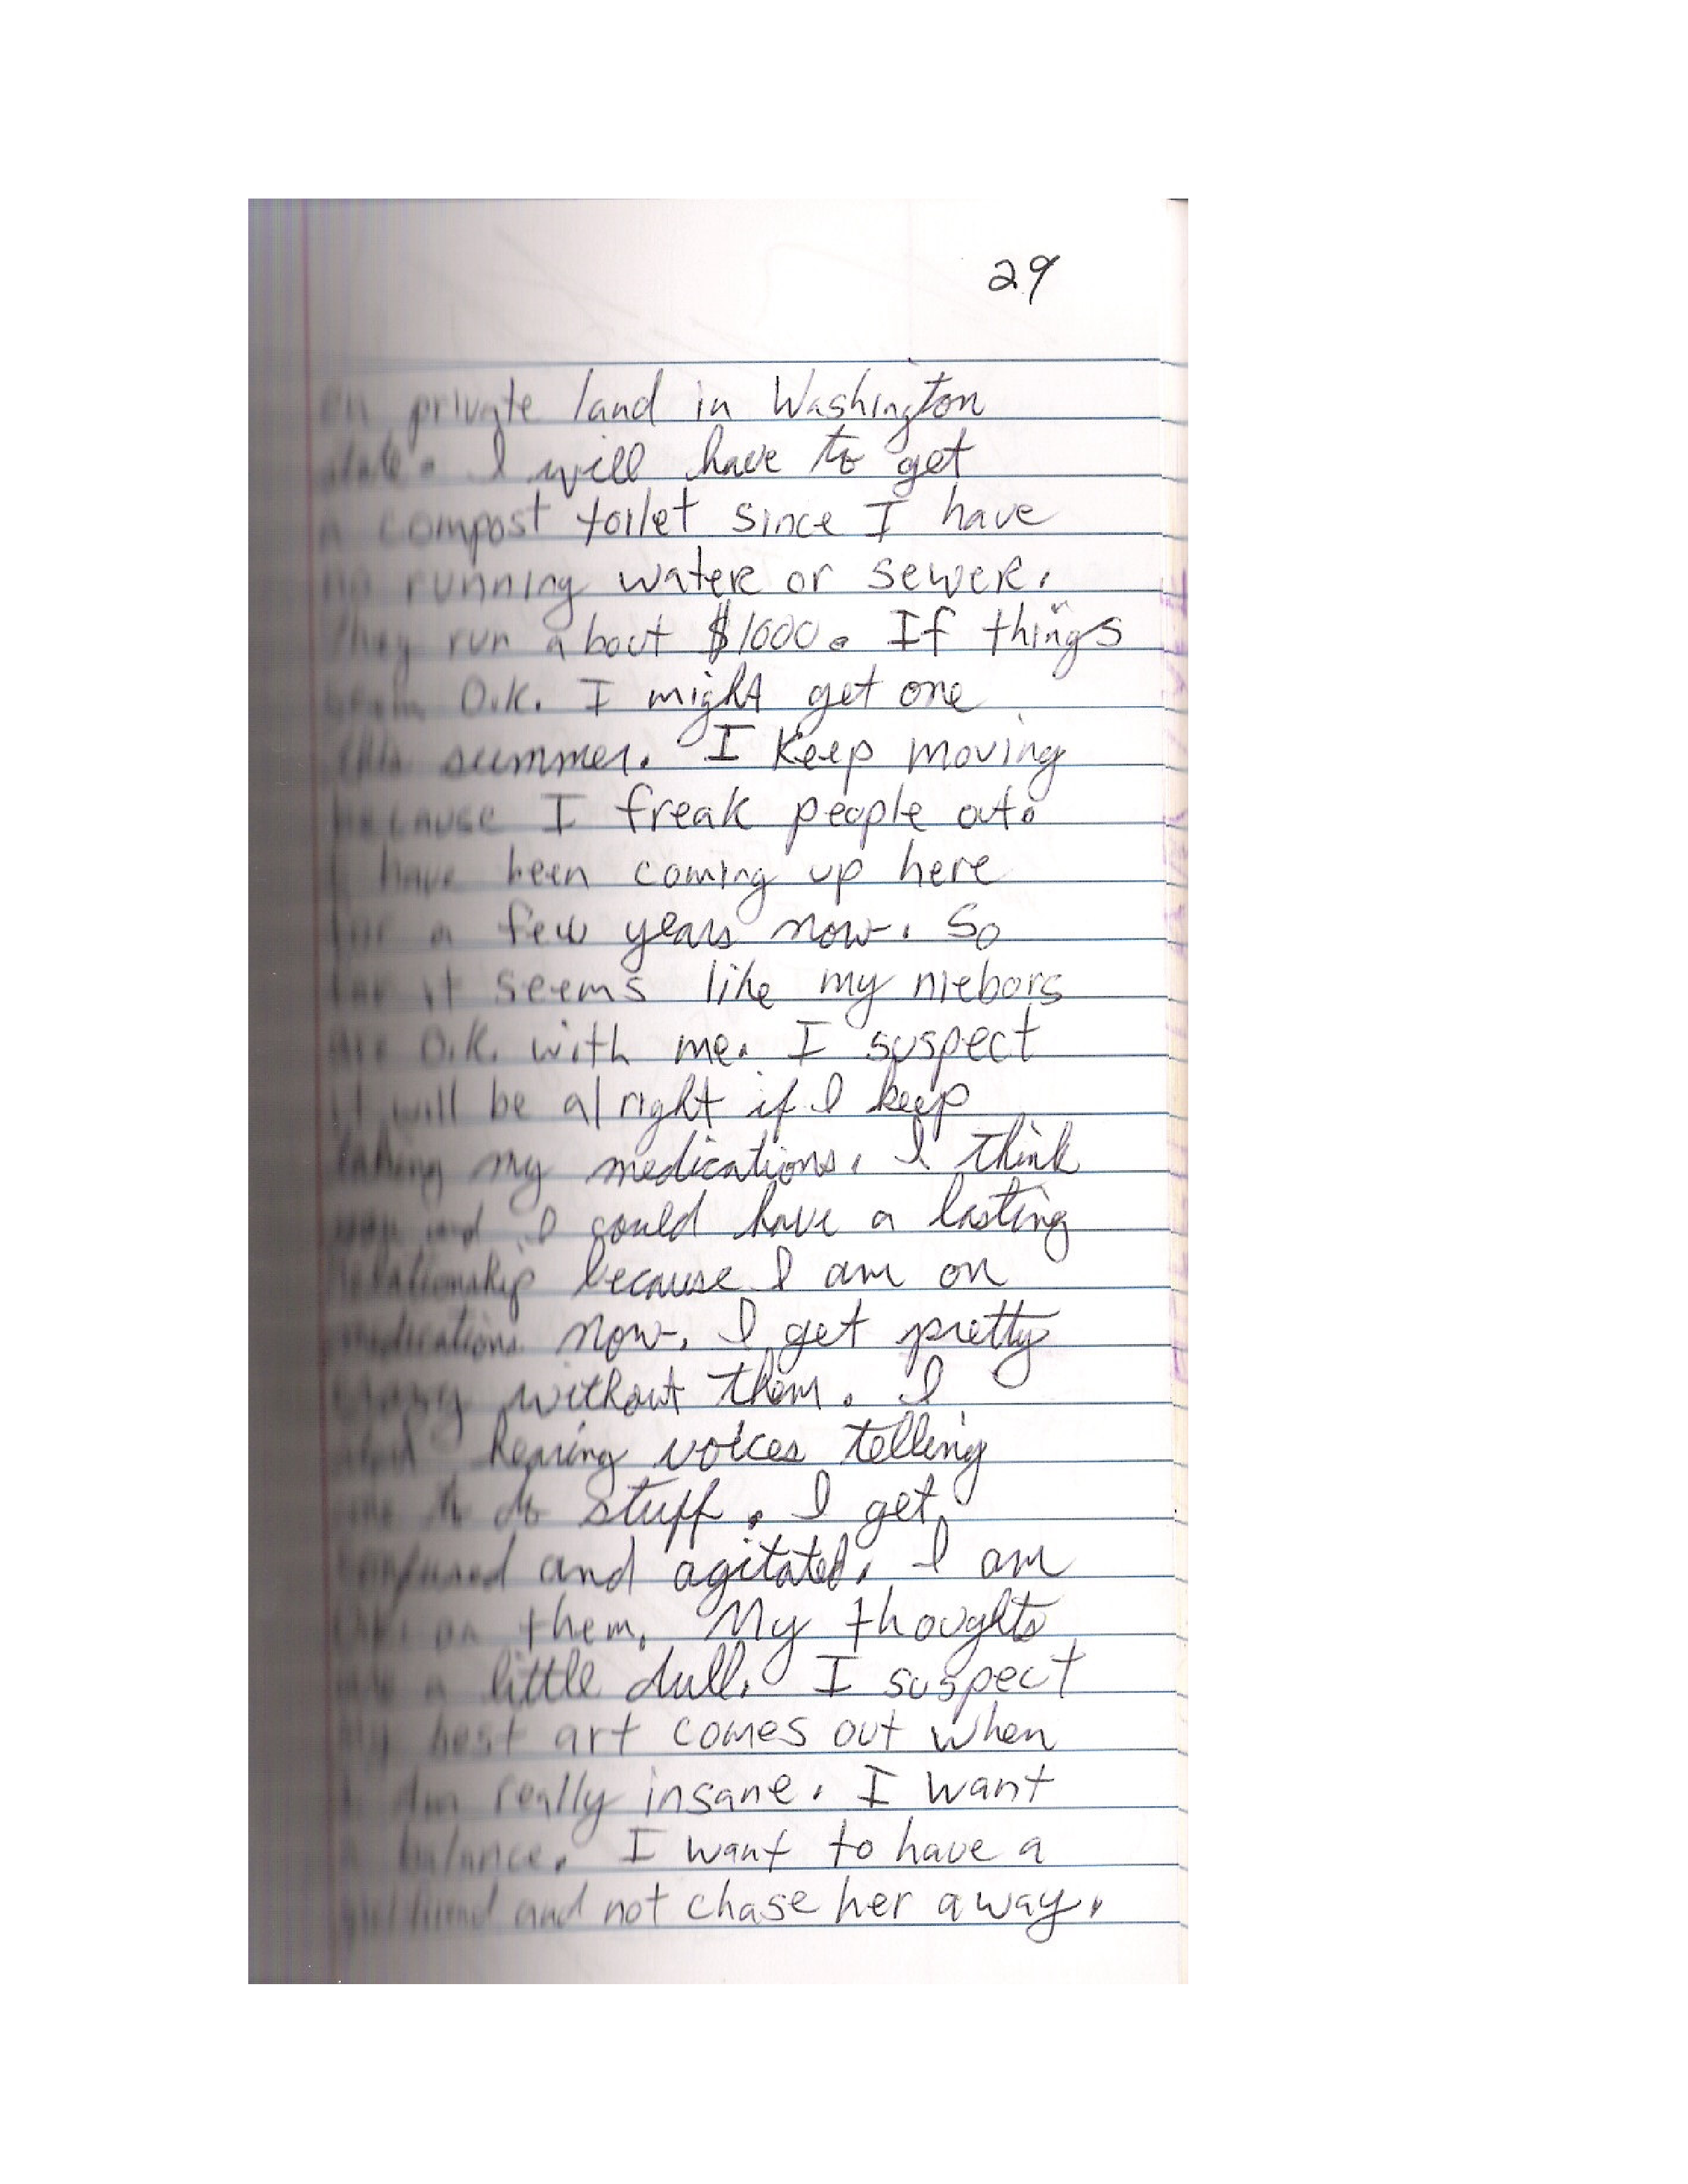 29
on private land in Washington
state. I will have to get
a compost toilet since I have
no running water or sewer.
They run about $1000. If things
seem O.K. I might get one
this summer. I keep moving
because I freak people out.
I have been coming up here
for a few years now. So
far it seems like my niebors
are O.K. with me. I suspect
it will be alright if I keep
taking my medications. I think
you and I could have a lasting
relationship because I am on
medications now. I get pretty
crazy without them. I
start hearing voices telling
me to do stuff. I get
confused and agitated. I am
on them. My thoughts
are a little dull. I suspect
my best art comes out when
I am really insane. I want
a balance. I want to have a
girlfriend and not chase her away.